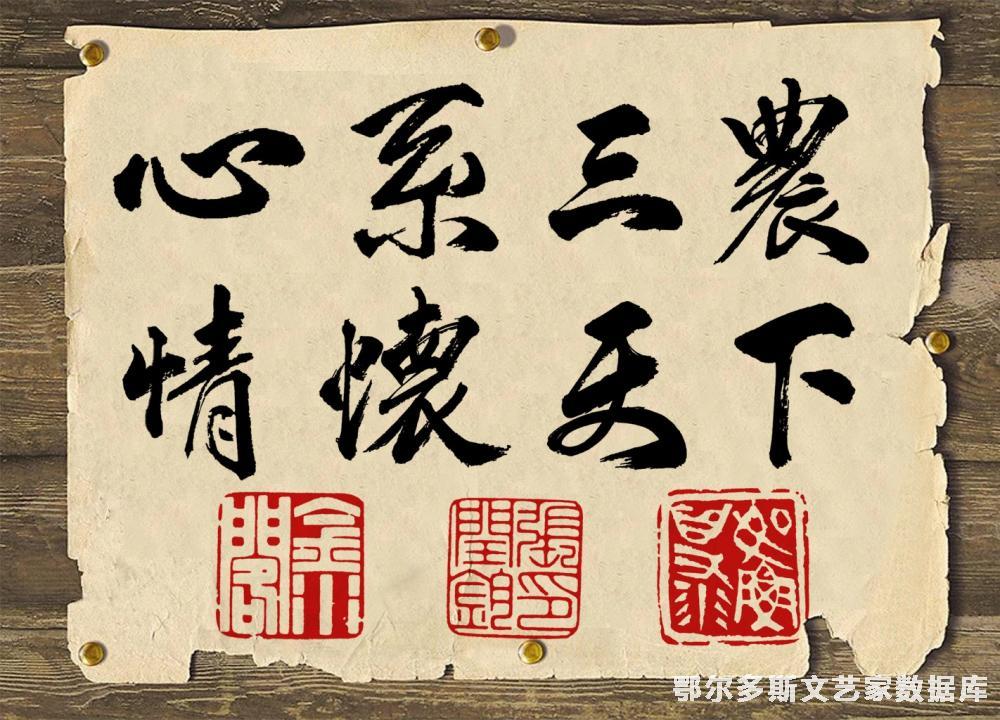 心系三農
情懷天下
鄂尔多斯文艺家数据库